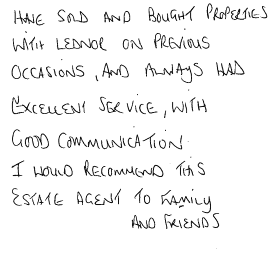 HAVE SOLD AND BOUGHT PROPERTIES
WITH LEDNOR ON PREVIOUS
OCCASIONS, AND ALWAYS HAD
EXCELLENT SERVICE, WITH
GOOD COMMUNICATION.
I WOULD RECOMMEND THIS
ESTATE AGENT TO FAMILY
AND FRIENDS